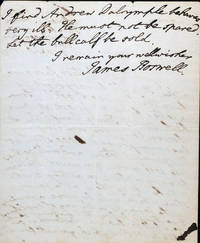 I find Andrew Dalrymple behaves
very ill. He must not be spared.
Let the bull calf be sold.
I remain your wellwisher
James Boswell.